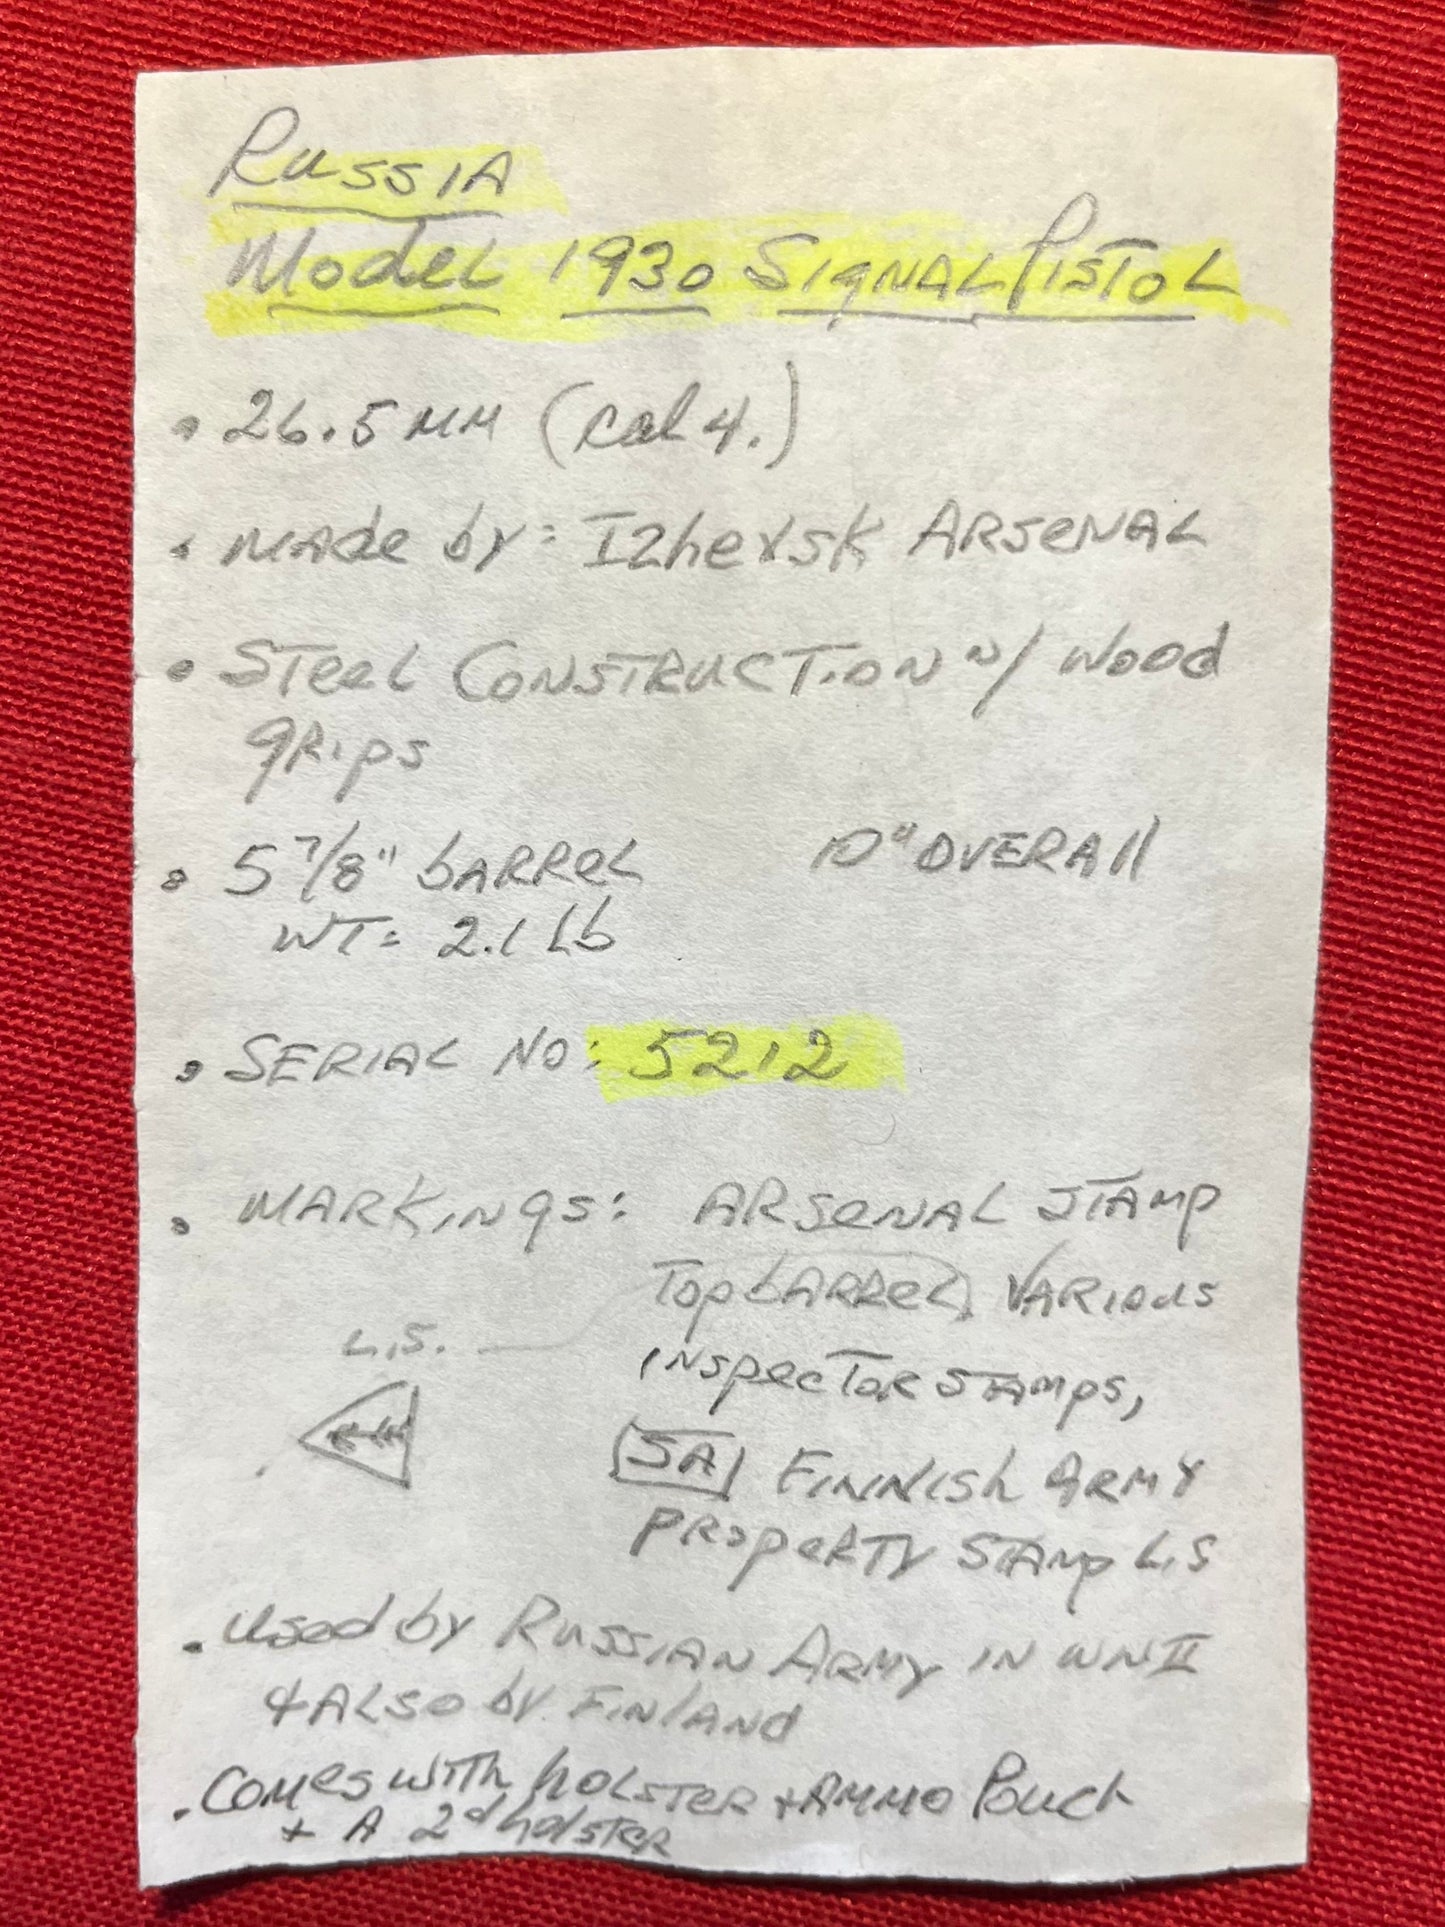 Russia
Model 1930 Signal Pistol
• 26.5 mm (cal 4.)
• made by: Izhevsk Arsenal
• Steel Construction w/ wood
grips
• 5 7/8" barrel 10" overall
WT= 2.1 Lb
• Serial No: 5212
• Markings: Arsenal stamp
Top barrel, Various
L.S.
inspector stamps,
SA Finnish Army
property stamp L.S
• used by Russian Army in WWII
& also by Finland
• Comes with holster + Ammo Pouch
+ A 2d holster